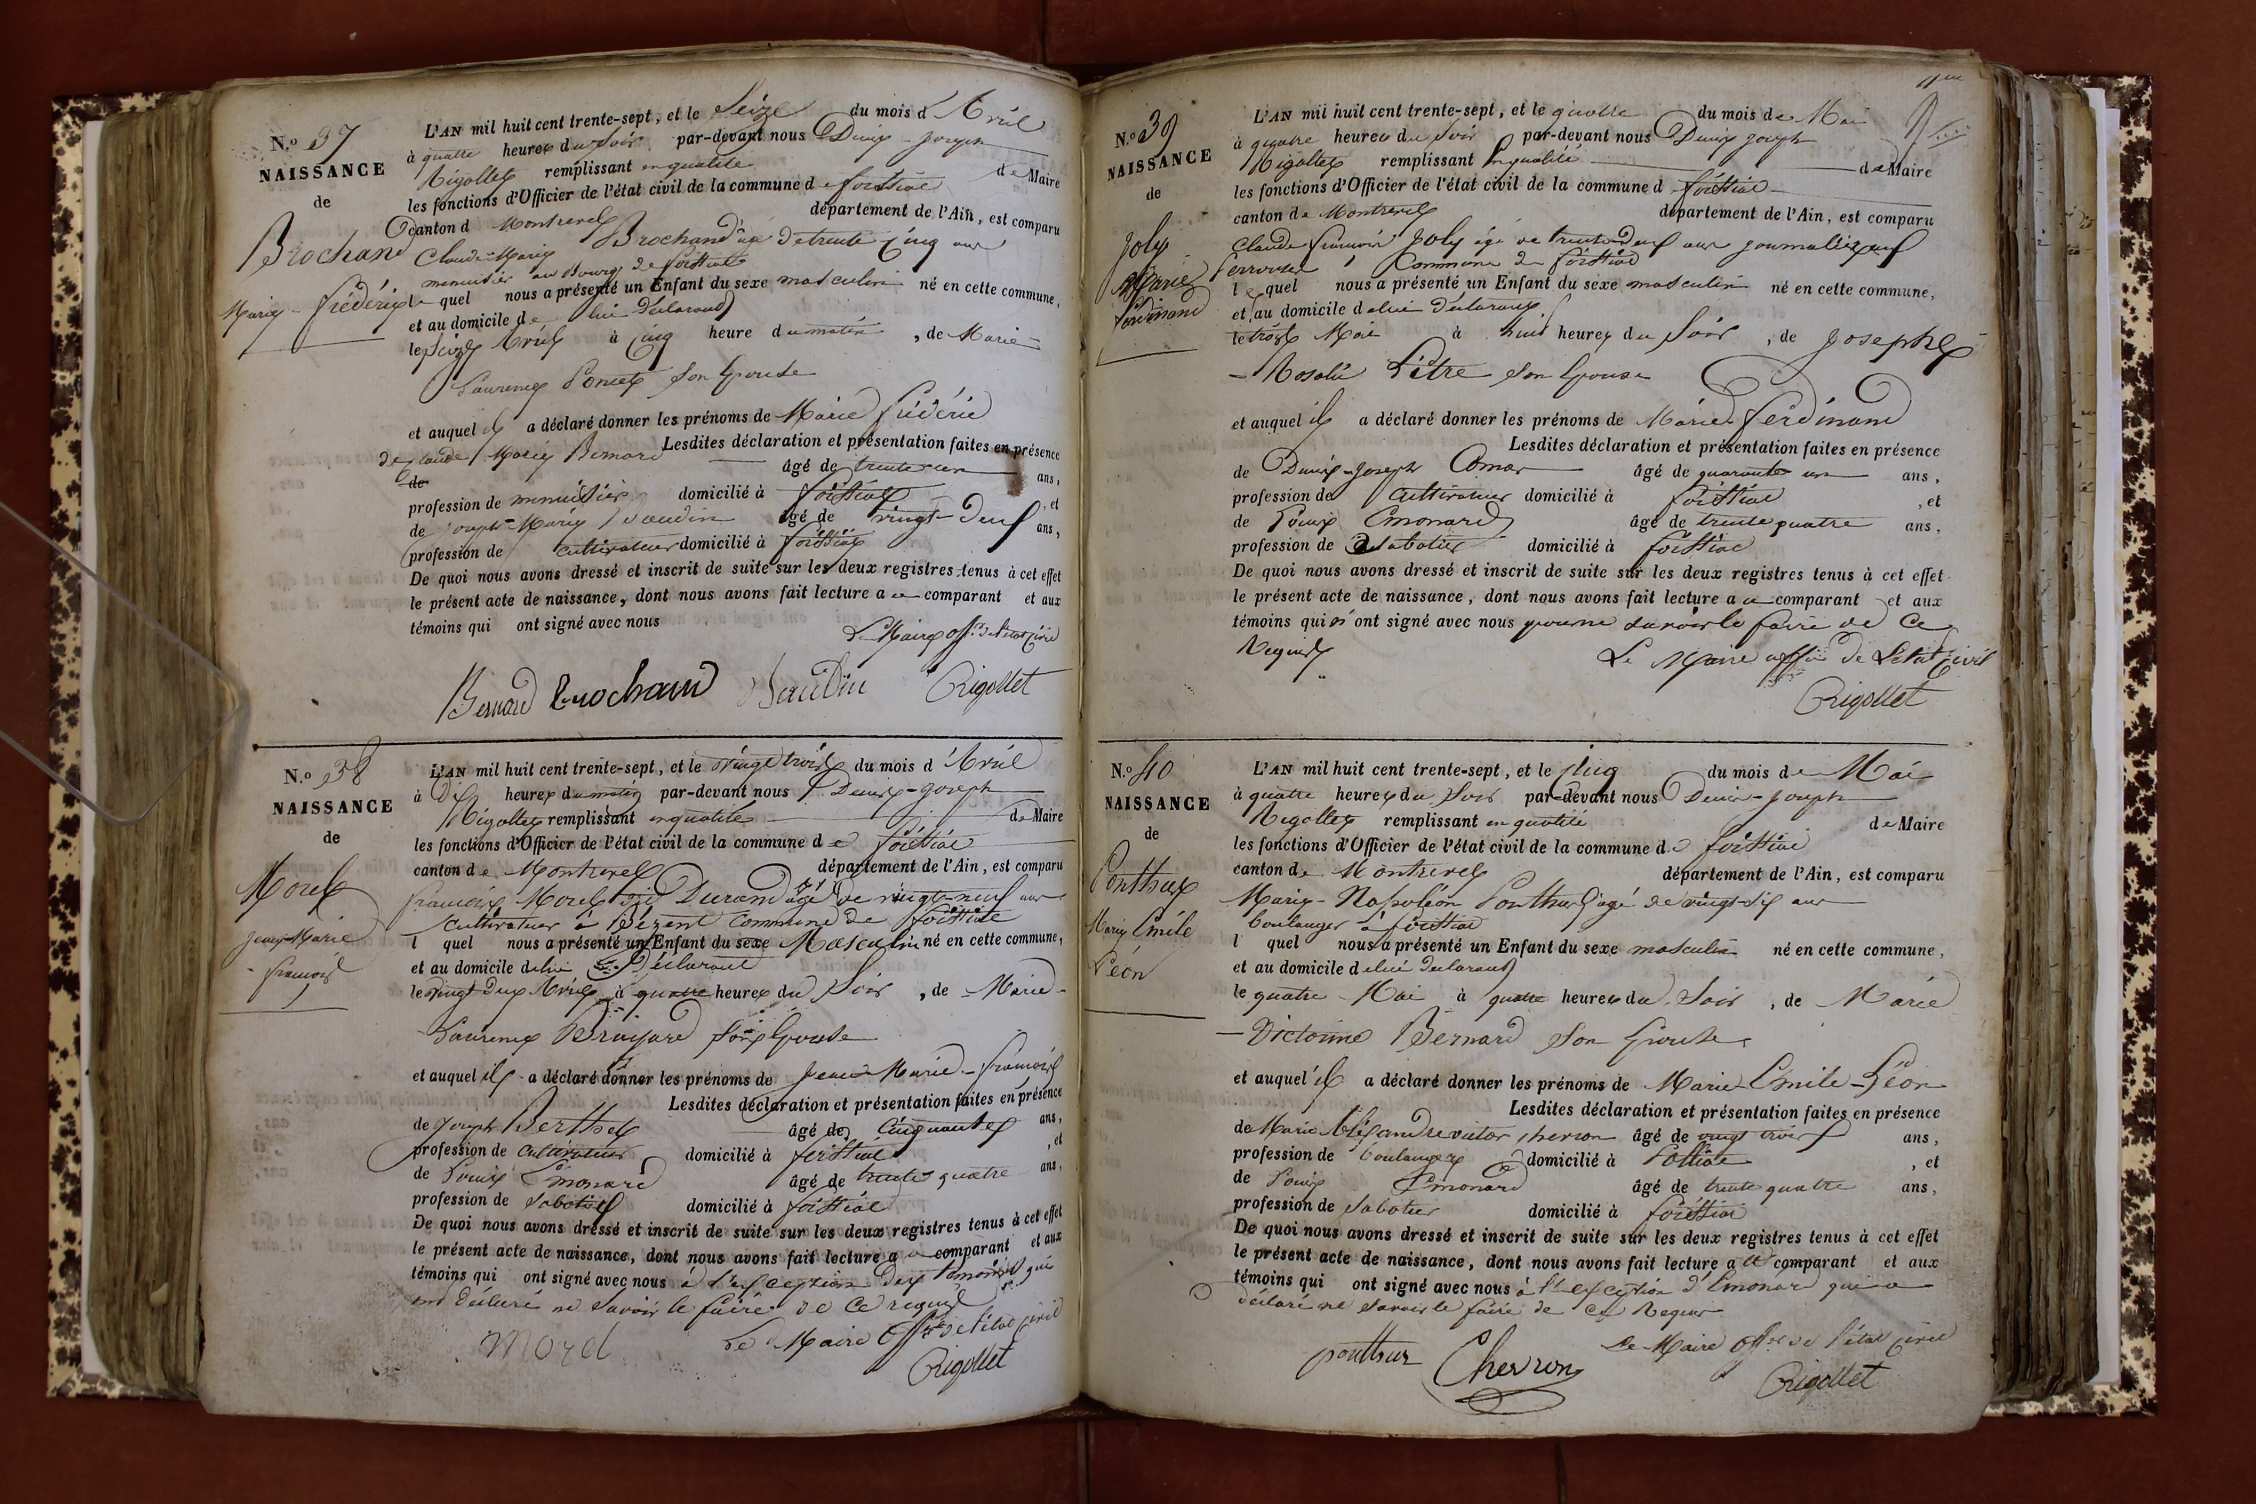 N.º 37
NAISSANCE
de
Brochand
Marie-Frédéric
L'AN mil huit cent trente-sept, et le Seize du mois d'Avril
à quatre heures du Soir par-devant nous Denis-Joseph
Rigollet remplissant en qualité de Maire
les fonctions d'Officier de l'état civil de la commune de foissiat
canton de Montrevel département de l'Ain, est comparu
Claude-Marie Brochand âgé de trente cinq ans
menuisier au Bourg de foissiat
le quel nous a présenté un Enfant du sexe masculin né en cette commune,
et au domicile de lui déclarant
le Seize Avril à cinq heure du matin, de Marie
Laurence Poncet son Epouse
et auquel il a déclaré donner les prénoms de Marie frédéric
Lesdites déclaration et présentation faites en présence
de Claude Marie Bernard âgé de trente un ans,
de
profession de menuisier domicilié à foissiat, et
de joseph-Marie Vaudin âgé de vingt-neuf ans,
profession de cultivateur domicilié à foissiat
De quoi nous avons dressé et inscrit de suite sur les deux registres tenus à cet effet
le présent acte de naissance, dont nous avons fait lecture au comparant et aux
témoins qui ont signé avec nous
Le Maire off.er de l'état civil
Bernard Brochand Vaudin Rigollet
N.º 38
NAISSANCE
de
Morel
Jean-Marie
-françois
L'AN mil huit cent trente-sept, et le vingt trois du mois d'Avril
à Dix heures du matin par-devant nous Denis-joseph
Rigollet remplissant en qualité de Maire
les fonctions d'Officier de l'état civil de la commune de foissiat
canton de Montrevel département de l'Ain, est comparu
françois Morel dit Durand âgé de vingt-neuf ans
cultivateur à Bézent commune de foissiat
l quel nous a présenté un Enfant du sexe Masculin né en cette commune,
et au domicile de lui Déclarant
le vingt Deux Avril à quatre heures du Soir, de Marie-
Laurence Bruyard son Epouse
et auquel il a déclaré donner les prénoms de Jean-Marie-françois
Lesdites déclaration et présentation faites en présence
de joseph Berthet âgé de cinquante ans,
profession de cultivateur domicilié à foissiat, et
de Louis Emonard âgé de trente quatre ans,
profession de sabotier domicilié à foissiat
De quoi nous avons dressé et inscrit de suite sur les deux registres tenus à cet effet
le présent acte de naissance, dont nous avons fait lecture au comparant et aux
témoins qui ont signé avec nous à l'exception des témoins qui
ont déclaré ne savoir le faire de ce requis
Morel Le Maire Off.er de l'état civil
Rigollet
N.º 39
NAISSANCE
de
Joly
Marie
ferdinand
L'AN mil huit cent trente-sept, et le quatre du mois de Mai
à quatre heures du Soir par-devant nous Denis joseph
Rigollet remplissant En qualité de Maire
les fonctions d'Officier de l'état civil de la commune de foissiat
canton de Montrevel département de l'Ain, est comparu
Claude françois Joly âgé de trente neuf ans journalier
Commune de foissiat
le quel nous a présenté un Enfant du sexe masculin né en cette commune,
et au domicile de lui déclarant
le trois Mai à huit heures du Soir, de Josephe
-Rosalie Pître son Epouse
et auquel il a déclaré donner les prénoms de Marie ferdinand
Lesdites déclaration et présentation faites en présence
de Denis-Joseph Comas âgé de quarante un ans,
profession de cultivateur domicilié à foissiat, et
de Louis Emonard âgé de trente quatre ans,
profession de sabotier domicilié à foissiat
De quoi nous avons dressé et inscrit de suite sur les deux registres tenus à cet effet
le présent acte de naissance, dont nous avons fait lecture au comparant et aux
témoins qui n'ont signé avec nous pour ne savoir le faire de ce
Requis
Le Maire off.er de l'état civil
Rigollet
N.º 40
NAISSANCE
de
Ponthus
Marie Emile
Léon
L'AN mil huit cent trente-sept, et le cinq du mois de Mai
à quatre heures du Soir par-devant nous Denis-joseph
Rigollet remplissant en qualité de Maire
les fonctions d'Officier de l'état civil de la commune de foissiat
canton de Montrevel département de l'Ain, est comparu
Marie-Napoléon Ponthus âgé de vingt-six ans
boulanger à foissiat
l quel nous a présenté un Enfant du sexe masculin né en cette commune,
et au domicile de lui déclarant
le quatre Mai à quatre heures du Soir, de Marie
-Victorine Bernard son Epouse
et auquel il a déclaré donner les prénoms de Marie-Emile-Léon
Lesdites déclaration et présentation faites en présence
de Marie Aléxandre victor chevron âgé de vingt trois ans,
profession de boulanger domicilié à foissiat, et
de Louis Emonard âgé de trente quatre ans,
profession de sabotier domicilié à foissiat
De quoi nous avons dressé et inscrit de suite sur les deux registres tenus à cet effet
le présent acte de naissance, dont nous avons fait lecture au comparant et aux
témoins qui ont signé avec nous à l'exception d'Emonard qui a
déclaré ne savoir le faire de ce Requis
Le Maire off.er de l'état civil
ponthus Chevron Rigollet